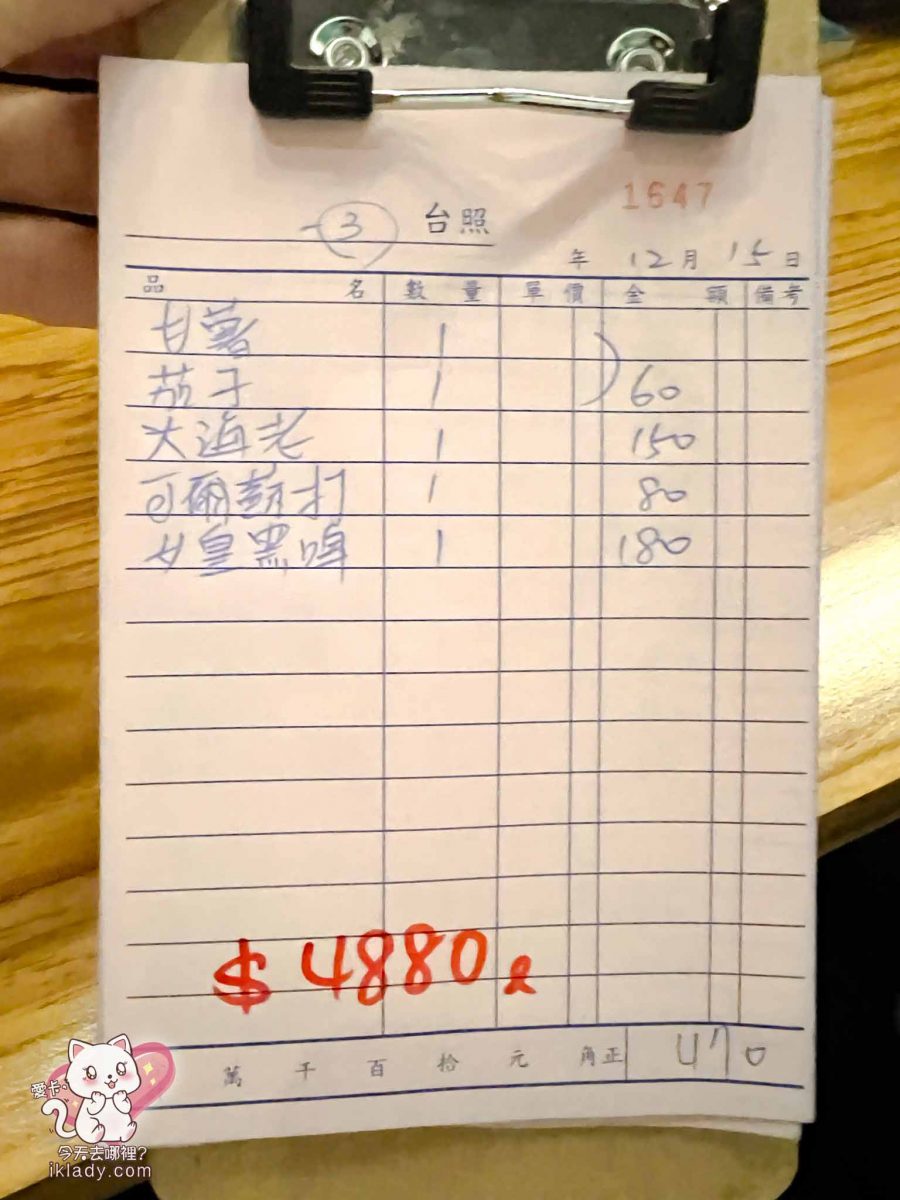 1647
3 台照
年 12月 15日
品名 數量 單價 金額 備考
甘薯 1
茄子 1 60
大海老 1 150
可爾蘇打 1 80
女皇黑啤 1 180
$ 4880
萬 千 百 拾 元 角正 470
愛卡
今天去哪裡?
iklady.com